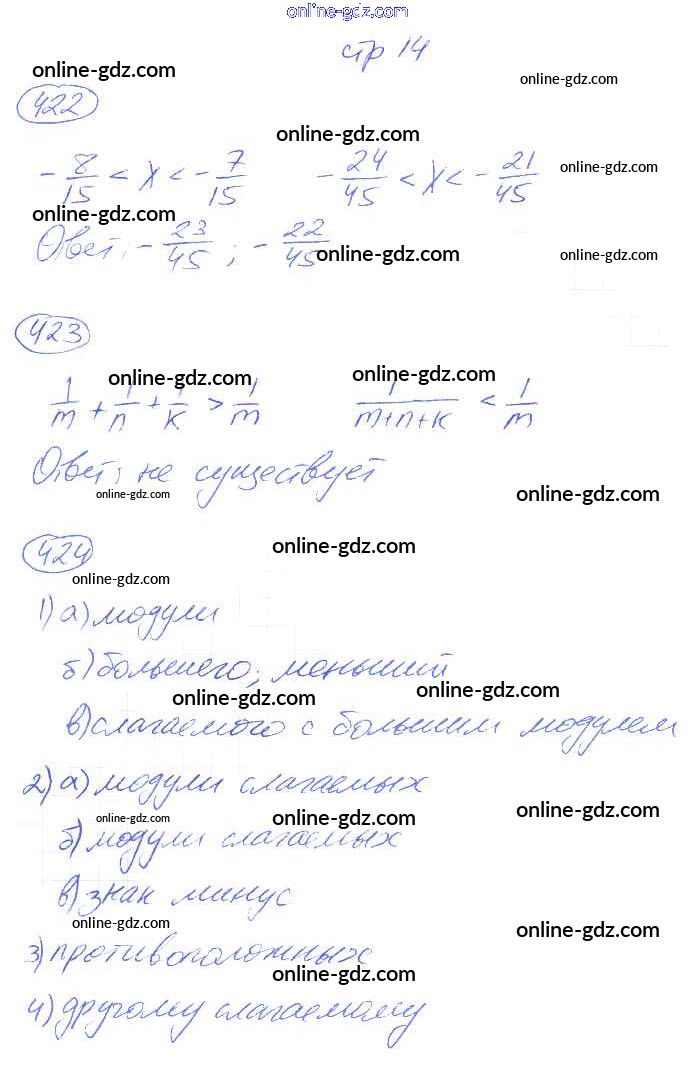 online-gdz.com
стр 14
online-gdz.com
online-gdz.com
422
online-gdz.com
-8/15 < x < -7/15 -24/45 < x < -21/45
online-gdz.com
online-gdz.com
Ответ: -23/45; -22/45
online-gdz.com
online-gdz.com
423
online-gdz.com
online-gdz.com
1/m + 1/n + 1/k > 1/m 1/(m+n+k) < 1/m
Ответ: не существует
online-gdz.com
online-gdz.com
424
online-gdz.com
online-gdz.com
1) а) модули
б) большего; меньший
online-gdz.com
online-gdz.com
в) слагаемого с большим модулем
2) а) модули слагаемых
online-gdz.com
online-gdz.com
online-gdz.com
б) модули слагаемых
в) знак минус
online-gdz.com
online-gdz.com
3) противоположных
online-gdz.com
4) другому слагаемому